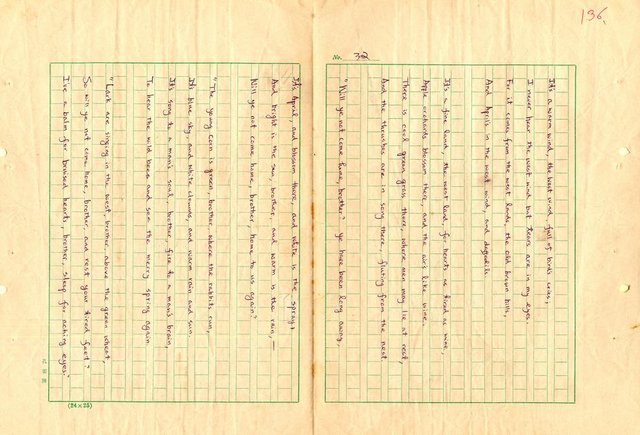 136.
No. 32
It's a warm wind, the west wind, full of birds cries;
I never hear the west wind but tears are in my eyes.
For it comes from the west lands, the old brown hills,
And April's in the west wind, and daffodils.
It's a fine land, the west land, for hearts as tired as mine,
Apple orchards blossom there, and the air's like wine.
There is cool green grass there, where men may lie at rest,
And the thrushes are in song there, fluting from the nest.
"Will ye not come home, brother? Ye have been long away,
It's April, and blossom time, and white is the spray;
And bright is the sun, brother, and warm is the rain, —
Will ye not come home, brother, home to us again?
"The young corn is green, brother, where the rabbits run,
It's blue sky, and white clouds, and warm rain and sun.
It's song to a man's soul, brother, fire to a man's brain,
To hear the wild bees and see the merry spring again.
"Lark are singing in the west, brother, above the green wheat,
So will ye not come home, brother, and rest your tired feet?
I've a balm for bruised hearts, brother, sleep for aching eyes."
(24×25)